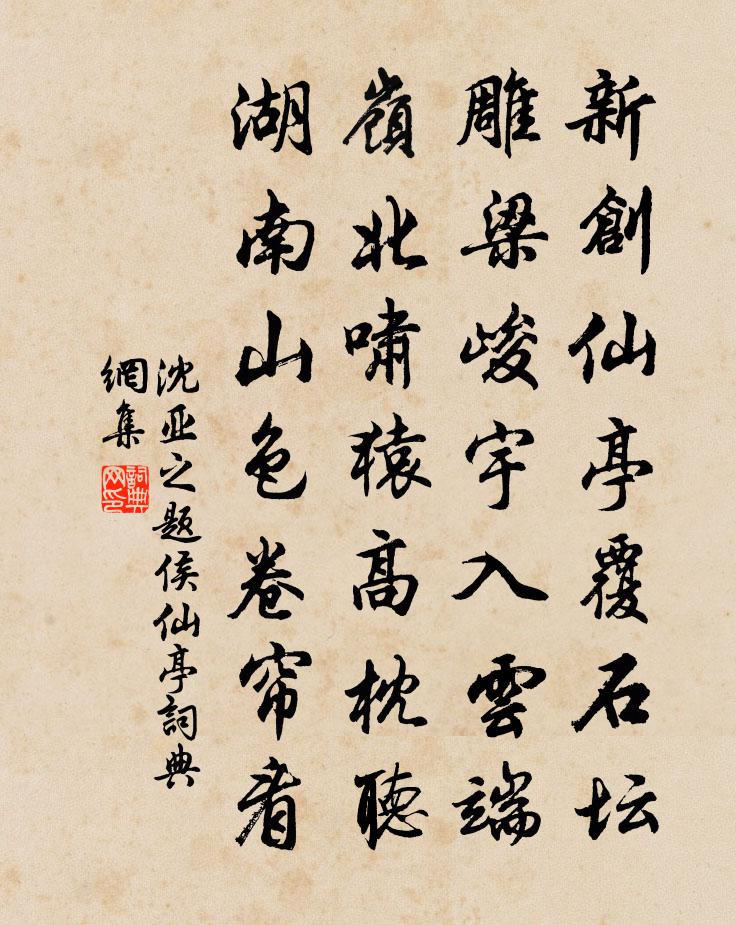 新創仙亭覆石坛
雕梁峻宇入雲端
嶺北嘯猿高枕聽
湖南山色卷帘看
沈亚之题侯仙亭詞典
網集
詞典
网印